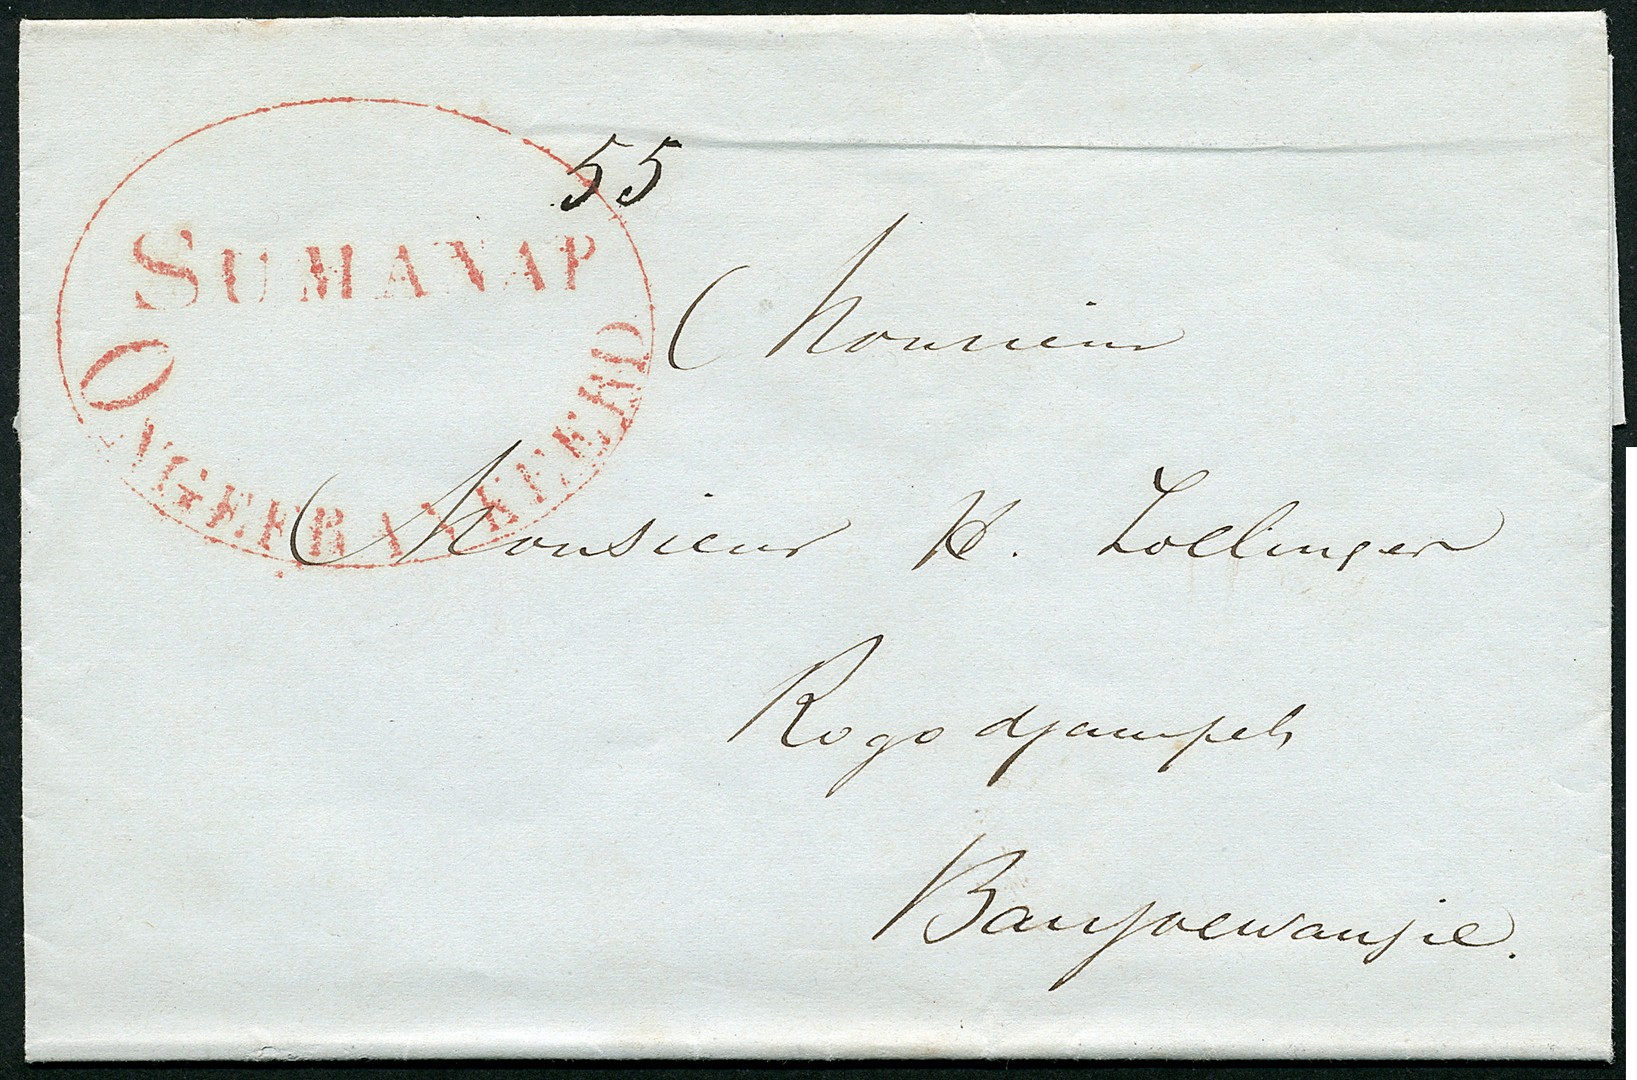 SUMANAP
ONGEFRANKEERD
55
Monsieur
Monsieur H. Zollinger
Rogodjampeh
Banjoewanjie.